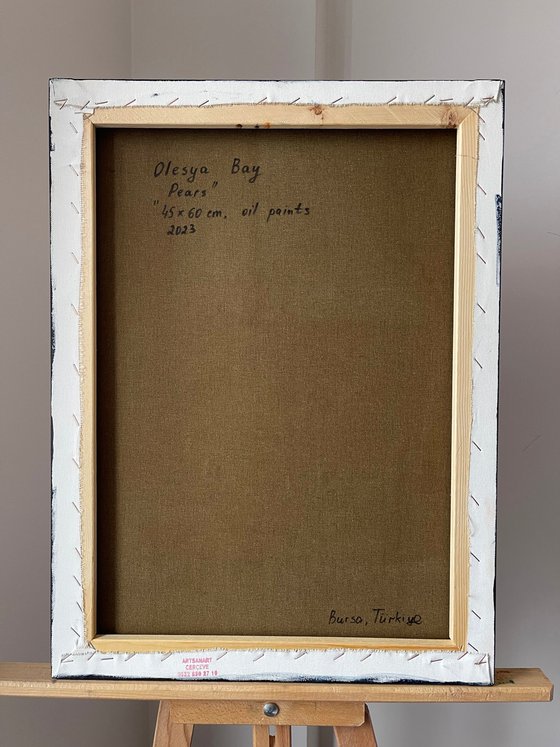 Olesya Bay
Pears"
"45 x 60 cm, oil paints
2023
Bursa, Türkiye
ARTSANART
ÇERÇEVE